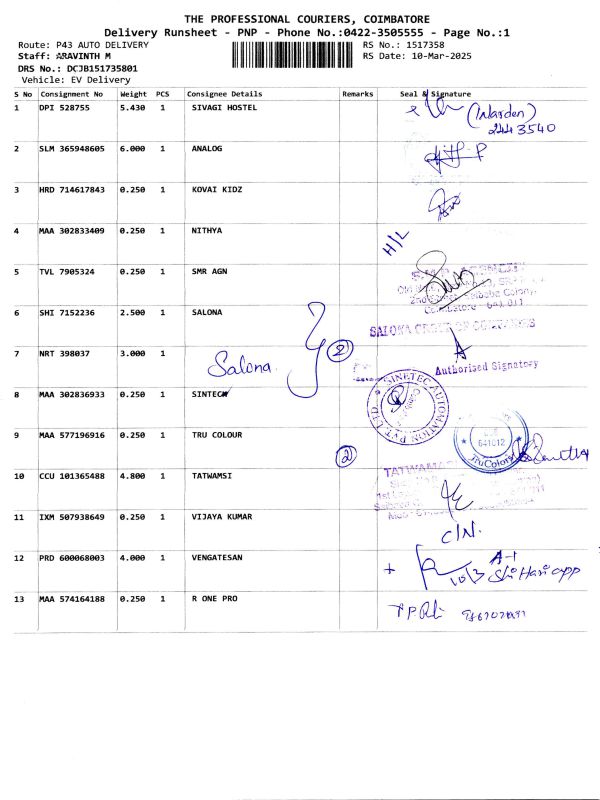 THE PROFESSIONAL COURIERS, COIMBATORE
Delivery Runsheet - PNP - Phone No.:0422-3505555 - Page No.:1
Route: P43 AUTO DELIVERY
RS No.: 1517358
Staff: ARAVINTH M
RS Date: 10-Mar-2025
DRS No.: DCJB151735801
Vehicle: EV Delivery
S No Consignment No Weight PCS Consignee Details Remarks Seal & Signature
1 DPI 528755 5.430 1 SIVAGI HOSTEL
(Warden)
2443540
2 SLM 365948605 6.000 1 ANALOG
3 HRD 714617843 0.250 1 KOVAI KIDZ
4 MAA 302833409 0.250 1 NITHYA H/L
5 TVL 7905324 0.250 1 SMR AGN
6 SHI 7152236 2.500 1 SALONA
SALONA GROUP OF COMPANIES
7 NRT 398037 3.000 1 Salona (2)
Authorised Signatory
8 MAA 302836933 0.250 1 SINTECH
SINETEC AUTOMATION PVT LTD.
9 MAA 577196916 0.250 1 TRU COLOUR (2)
641012
TruColors
10 CCU 101365488 4.800 1 TATWAMSI
11 IXM 507938649 0.250 1 VIJAYA KUMAR C/N.
12 PRD 600068003 4.000 1 VENGATESAN
A-1
10/3 Sri Hari app
13 MAA 574164188 0.250 1 R ONE PRO